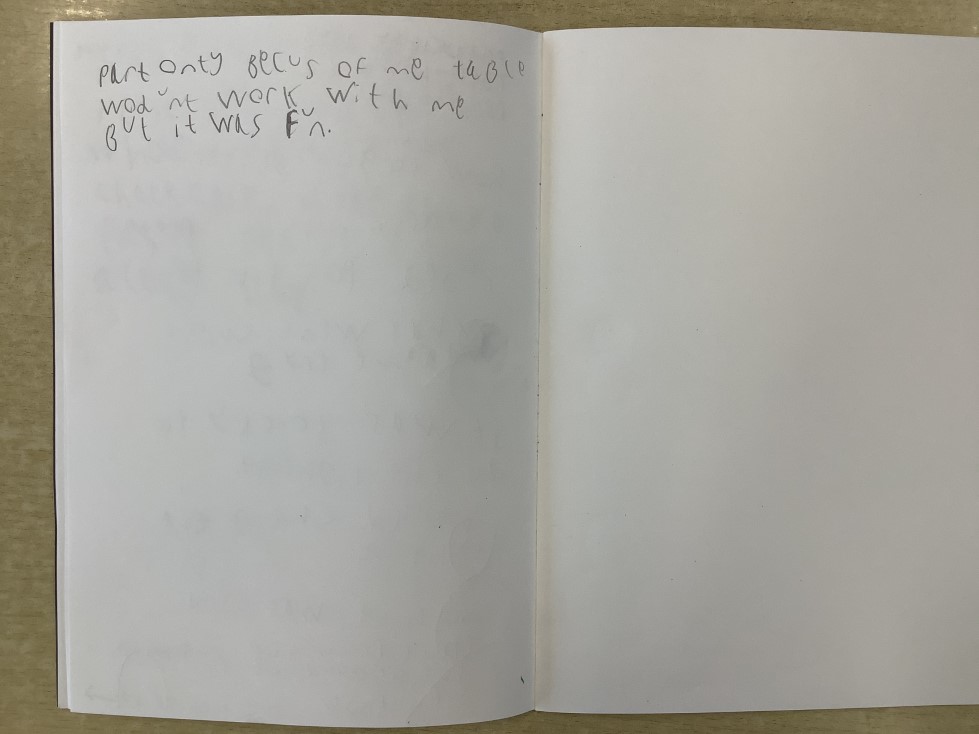 part only becus of me table
wod'nt work with me
But it was Fun.